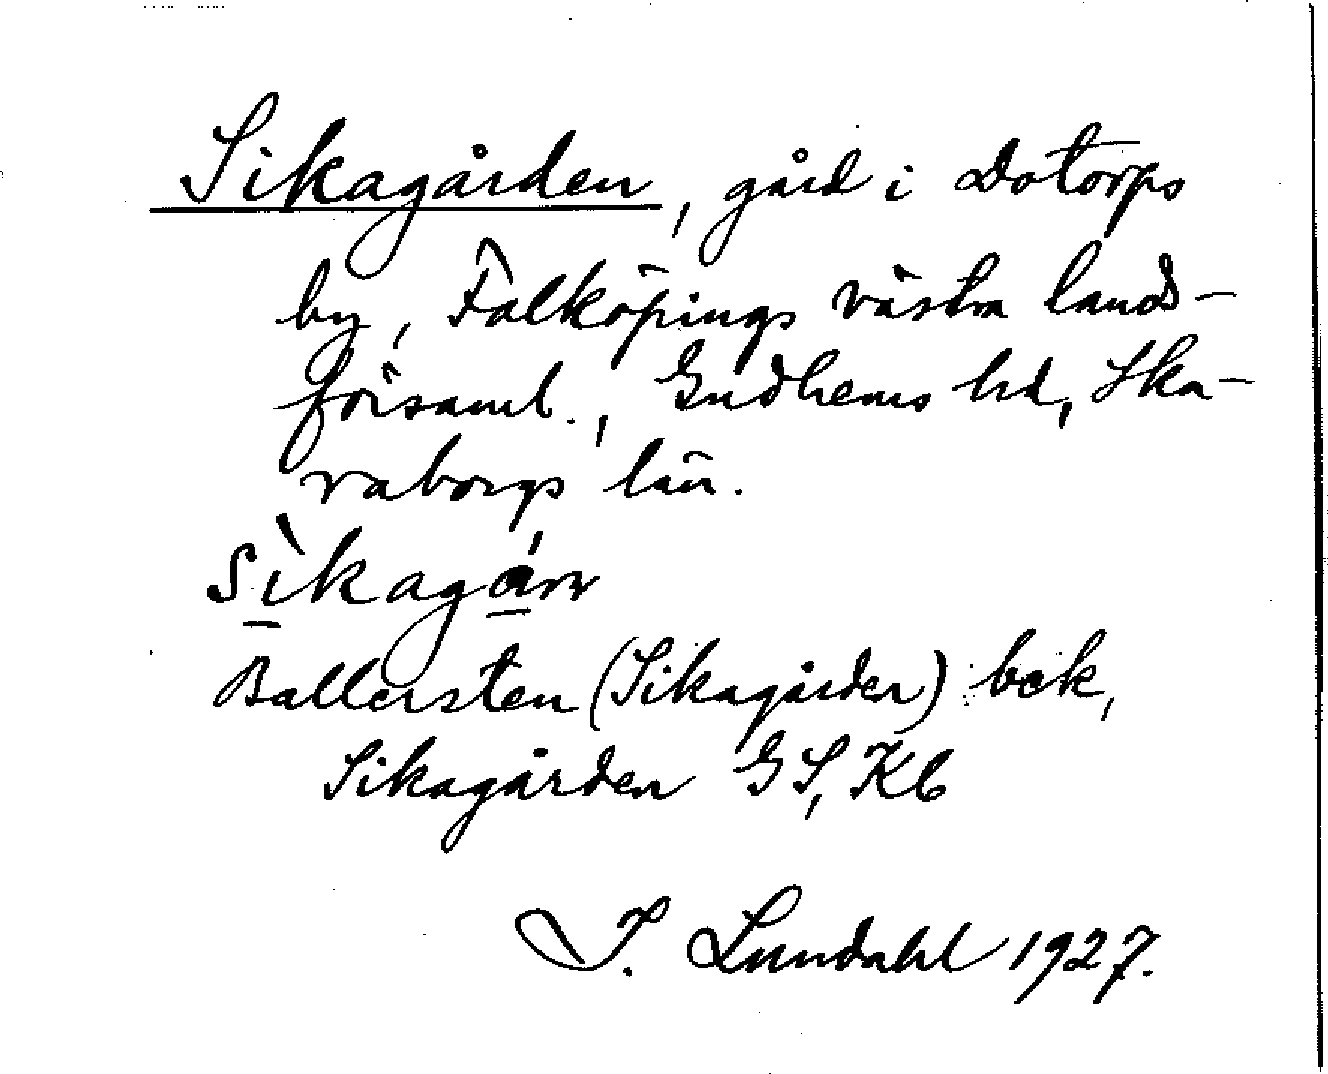 Sikagården, gård i Dotorps
by, Falköpings västra lands-
församl., Gudhems hd, Ska-
raborgs län.
sìkagárn
Ballersten (Sikagården) bek,
Sikagården GS, Kb
I. Lundahl 1927.